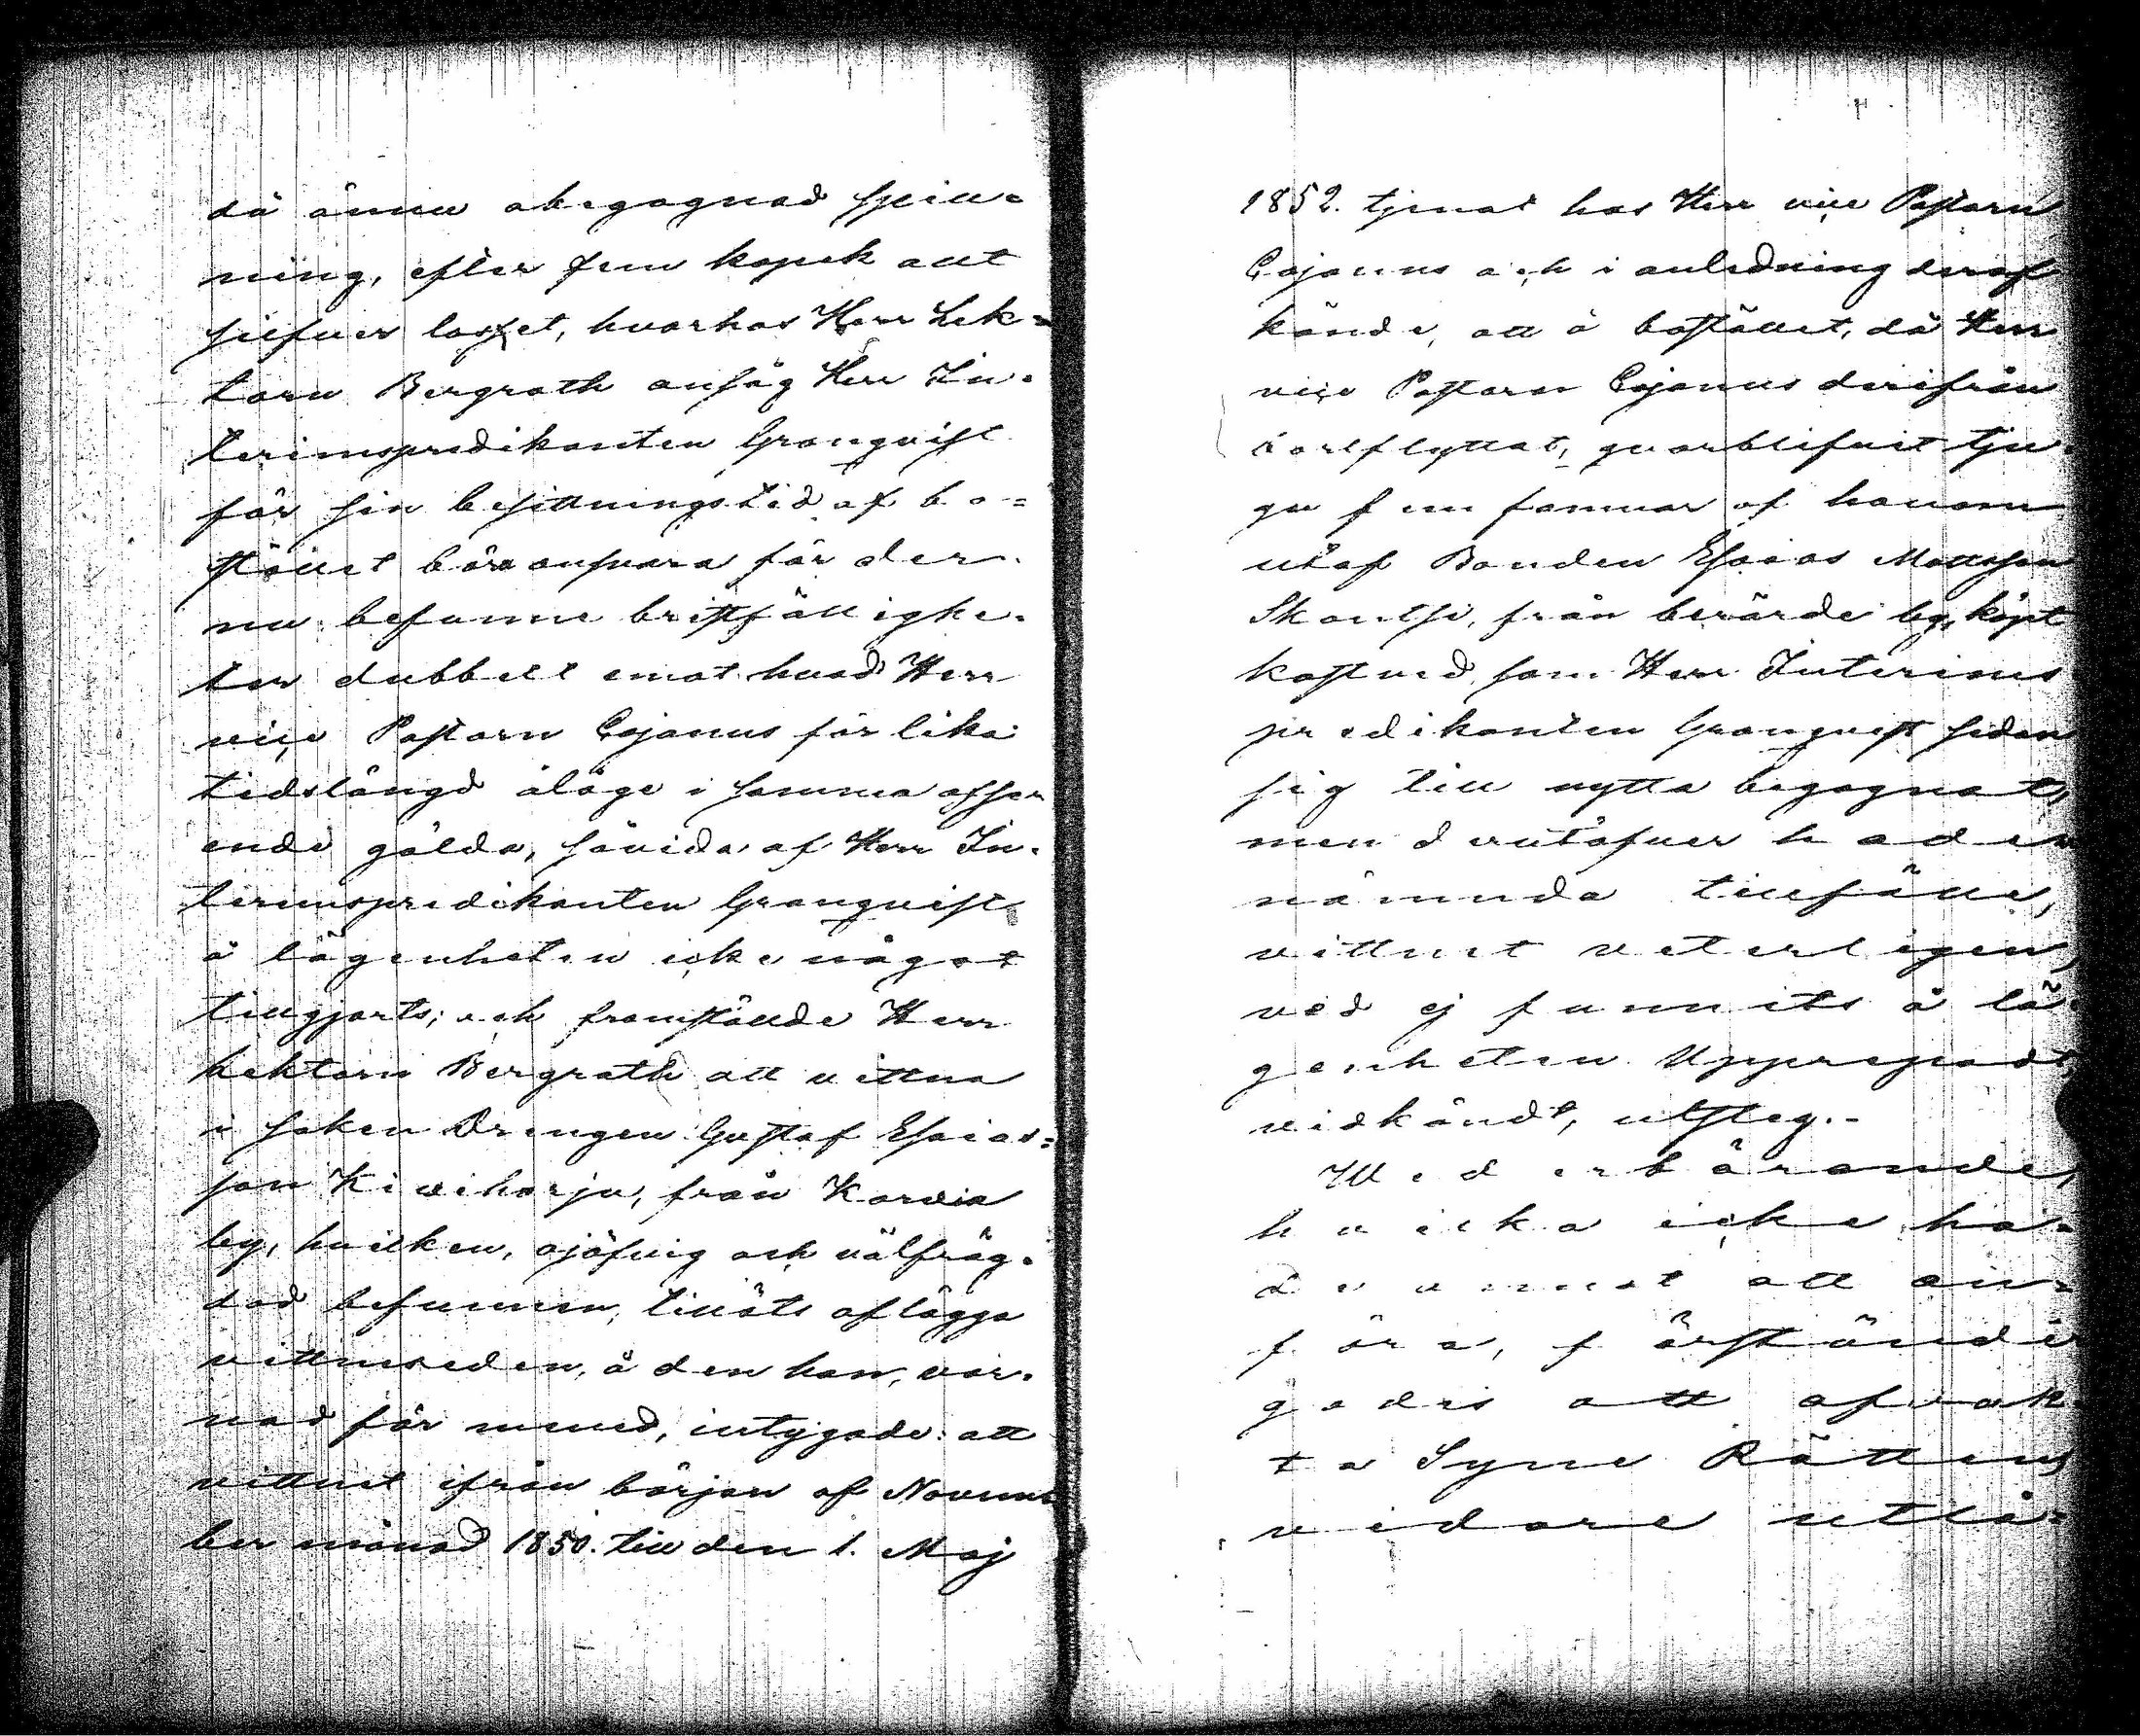 då ännu obegagnad spill-
ning, efter fem kopek allt
silfver lasset, hvarhos Herr Lek-
torn Bergroth ansåg Herr In-
terimspredikanten Granqvist
för sin besittningstid af bo-
stället böra ansvara för der-
nu befunne bristfällighe-
ter dubbelt emot hvad Herr
vice Pastorn Cajanus för lika
tidslängd ålåge i samma afse-
ende gälda, såvida af Herr In-
terimspredikanten Granqvist
å lägenheten icke något
tillgjorts; och framstälde Herr
Lektorn Bergroth att vittna
i saken Drengen Gustaf Esaias-
son Kiviharju, från Karvia
by, hvilken, ojäfvig och välfräg-
dad befunnen, tilläts aflägga
vittneseden, å den han, var-
nad för mened, intygade: att
vittnet ifrån början af Novem-
ber månad 1850. till den 1. Maj
1852. tjenat hos Herr vice Pastorn
Cajanus och i anledning deraf
kände, att å bostället, då Herr
vice Pastorn Cajanus derifrån
bortflyttat, qvarblifvit tju-
gu fem famnar af honom
utaf Bonden Esaias Mattsson
Skantsi, från berörde by, köpt
kastved, som Herr Interims
predikanten Granqvist sedan
sig till nytta begagnat,
men derutöfver hade
nämnda tillfälle,
vittnet veterligen,
ved ej funnits å lä-
genheten. Upprepadt,
vidkändt, utsteg.-
Wederbörande,
hvilka icke ha-
de annat att an-
föra, förstände-
gades att afvak-
ta Syne Rättens
vidare utlå-